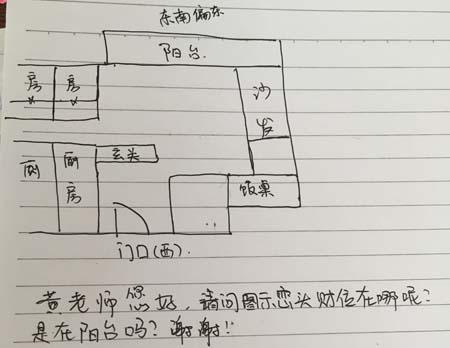 东南偏东
阳台.
房
房
沙
发
玄关
厕
厨
房
饭桌
门口(西).
黄老师您好，请问图示峦头财位在哪呢？
是在阳台吗？谢谢!!